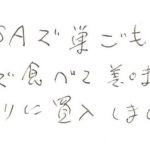 SAで巣ごも
で食べて美味
りに買入しまし